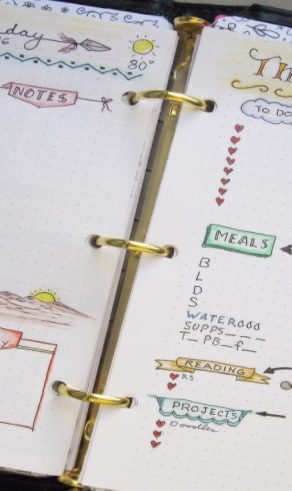 day
6
80°
NOTES
TO DO
MEALS
B
L
D
S
WATER
SUPPS _ _ _
T_ PB_f_
READING
RS
PROJECTS
Doodles